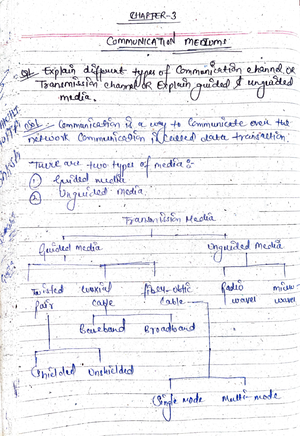 CHAPTER-3
COMMUNICATION MEDIUMS
Q1. Explain different types of Communication channel or
Transmission channel OR Explain guided & unguided
media.
Communication is a way to communicate over the
network Communication is called data transistion.
There are two types of media:-
① Guided media
② Unguided media.
Transmission Media
Guided media Unguided Media
Twisted Coaxial fiber-optic Radio micro-
pair cable cable waves waves
Baseband Broadband
Shielded Unshielded
Single mode Multi-mode